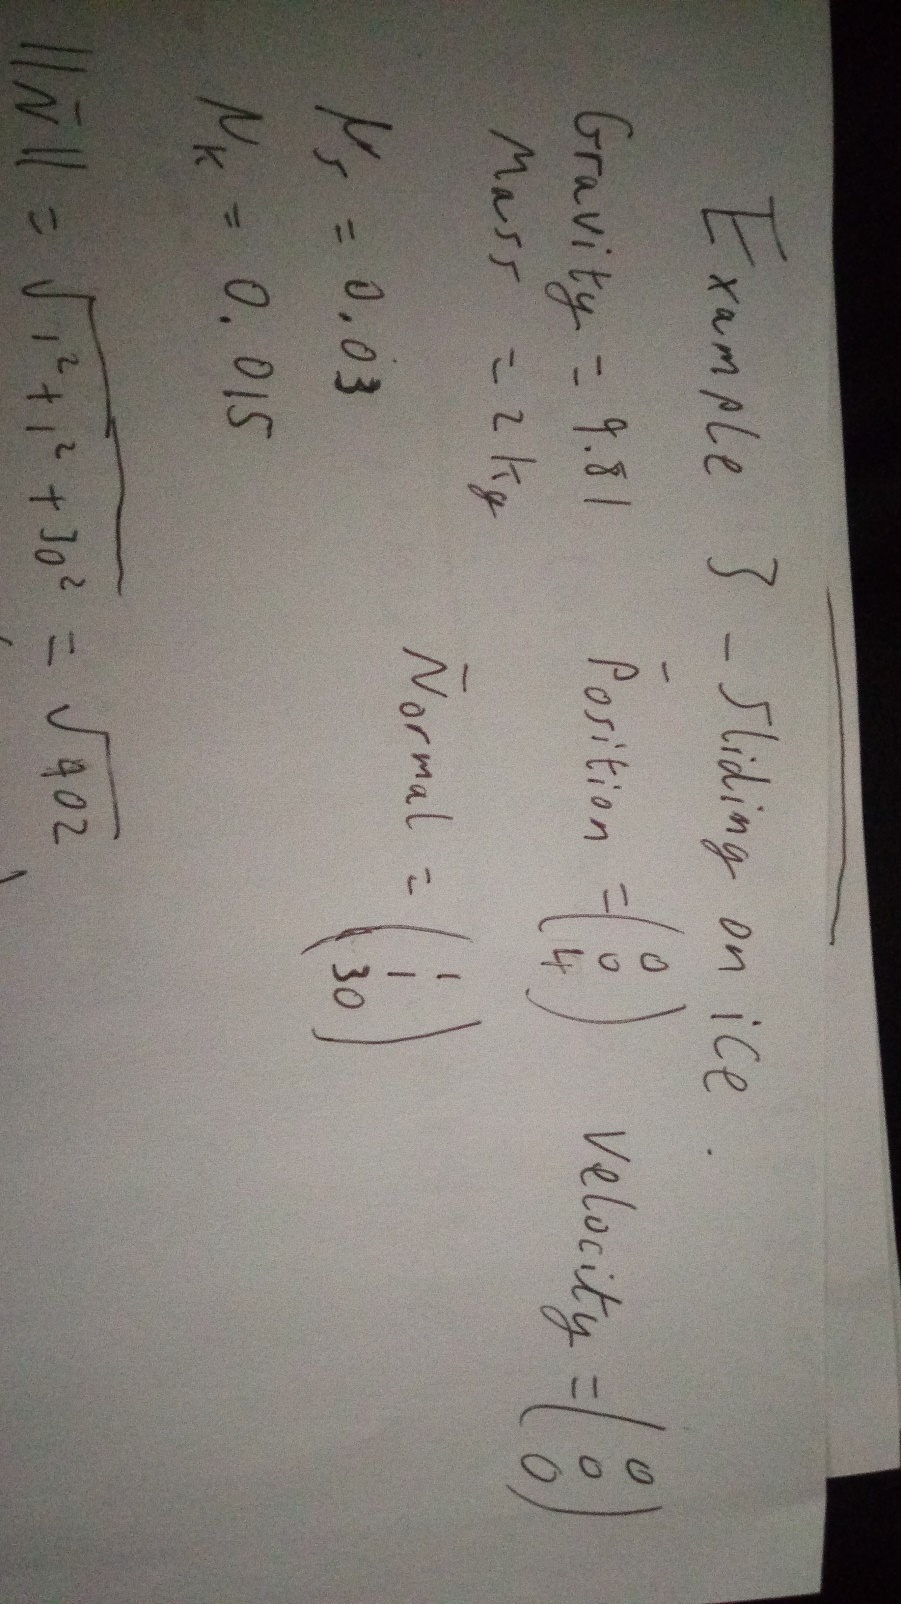 Example 3 - Sliding on ice.
Gravity = 9.81 Position = (0 0 4) Velocity = (0 0 0)
Mass = 2 kg
Normal = (1 1 30)
μs = 0.03
μk = 0.015
||N̄|| = √1² + 1² + 30² = √902